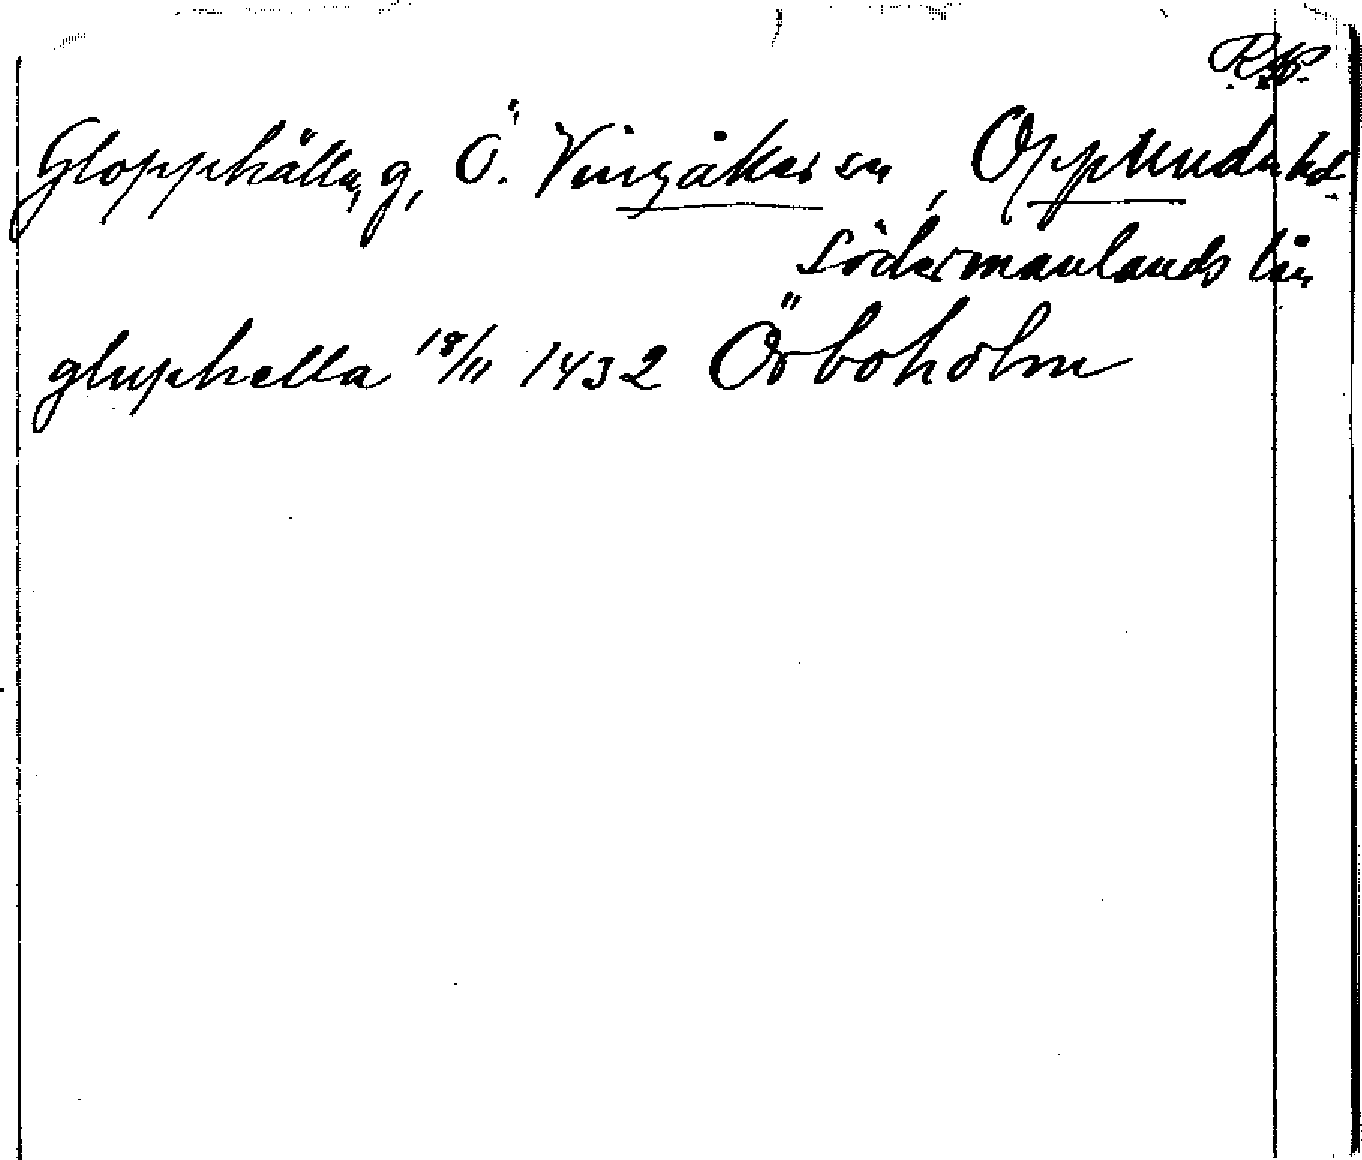 Glopphälla, g, Ö. Vingåkers sn, Oppunda hd.
Södermanlands län
gluphella 18/11 1432 Örboholm